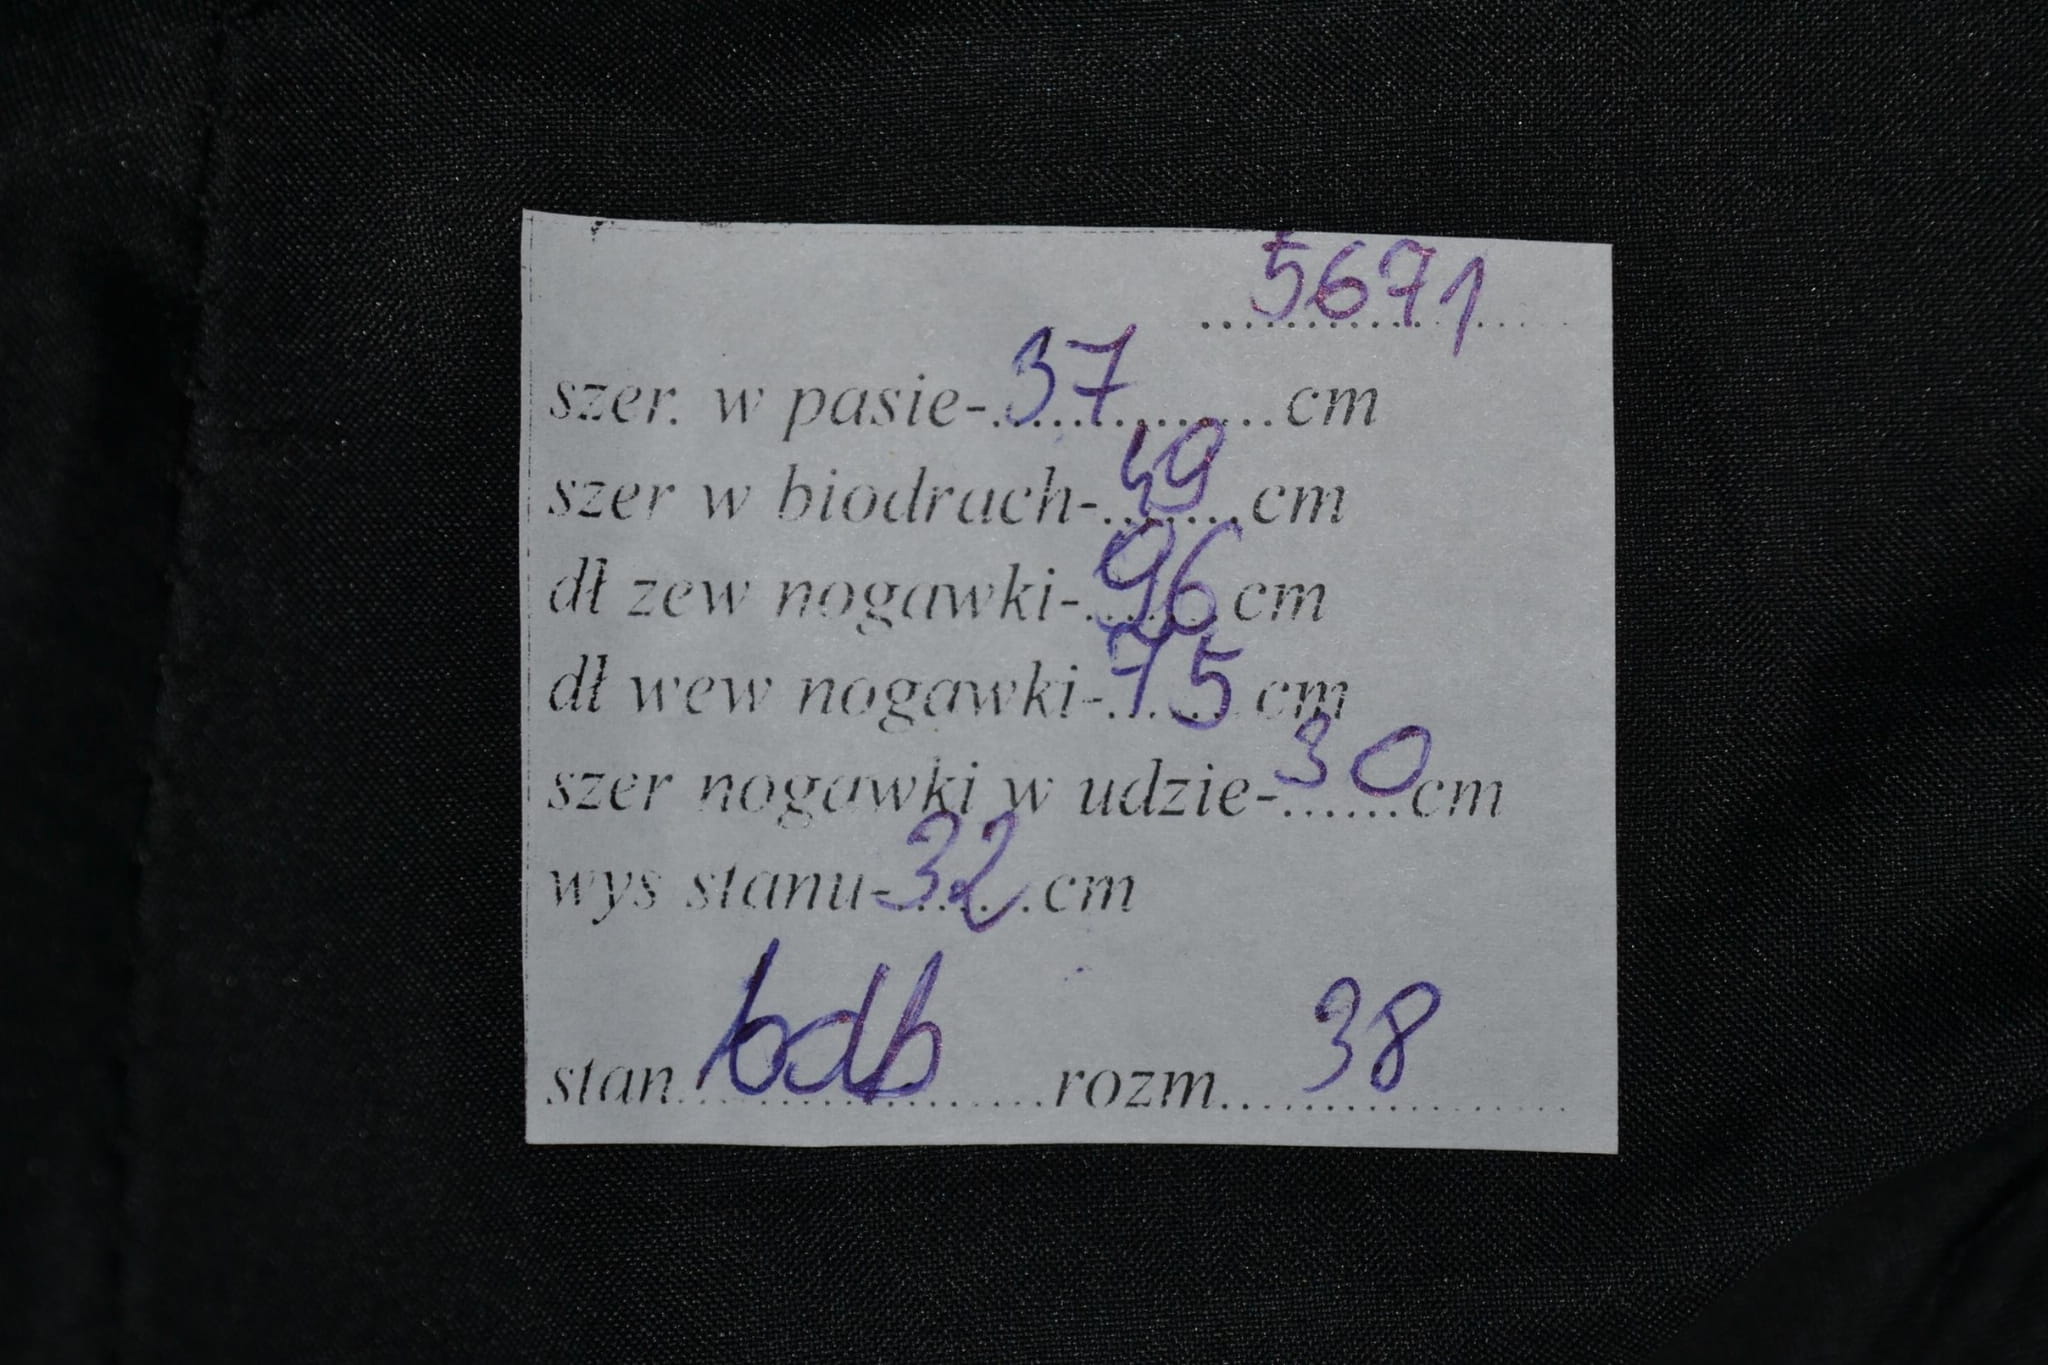 5671
szer. w pasie-37cm
szer w biodrach-49cm
dł zew nogawki-96cm
dł wew nogawki-75cm
szer nogawki w udzie-30cm
wys stanu-32cm
stan bdb rozm 38